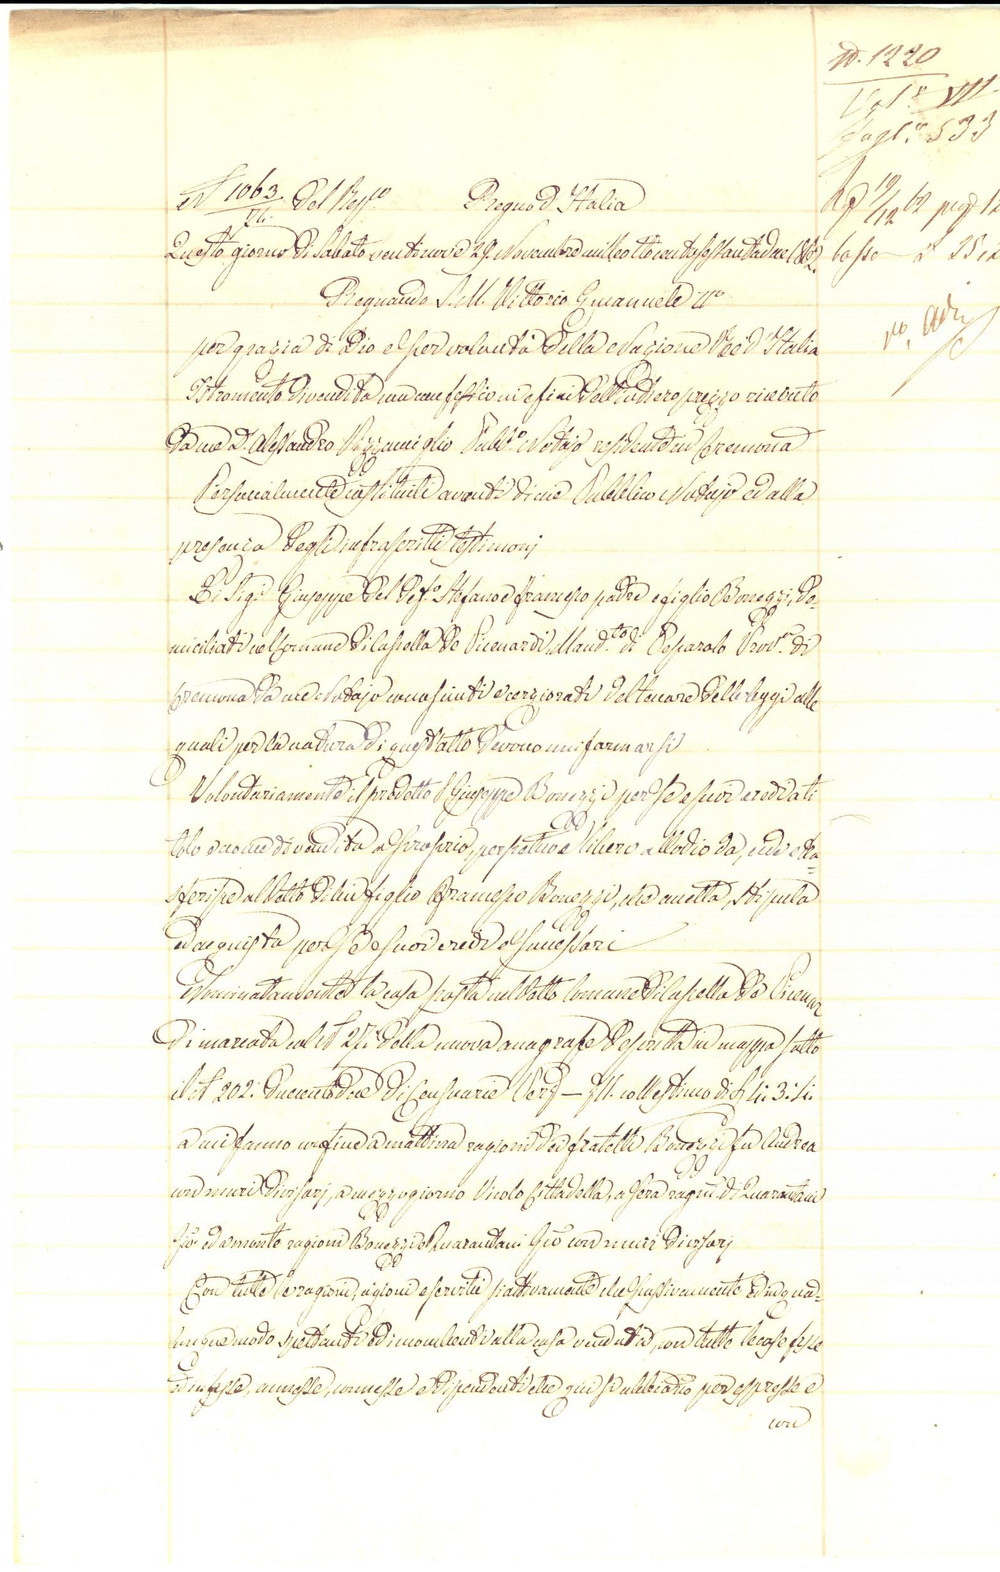 N. 1220
Vol.e VII.
Fogl.o 533
N 1063 del Rep.o Regno d'Italia
Questo giorno di Sabato ventinove 29. Novembre milleottocentosessantadue 1862.
basso
Regnando S. M. Vittorio Emanuele IIo
per grazia di Dio e per volontà della Nazione Re d'Italia
Istromento di vendita con confessione e fine dell'intiero prezzo ricevuto
da me D. Alessandro Pubb.o Notajo residente in Cremona
Personalmente costituiti avanti di me Pubblico Notajo ed alla
presenza degli infrascritti testimonj
Li Sig.i Giuseppe del def.o Stefano e Francesco padre e figlio Bonezzi, do-
miciliati nel Comune di Casella De Picenardi, Mand.to di Pescarolo Prov.a di
Cremona da me Notajo conosciuti e cerziorati del tenore delle leggi alle
quali per la natura di quest'atto devono uniformarsi
Volontariamente il prodetto S. Giuseppe Bonezzi per se e suoi eredi a ti
tolo e nome di vendita a proprio, perpetuo e libero allodio da, cede e tra-
sferisce al dotto di lui figlio Francesco Bonezzi, che accetta, stipula
ed acquista per se e suoi eredi e successori
Nominatamente la casa posta nel dotto Comune di Casella De Picenar
di marcata col N 27: della nuova anagrafe descritta in mappa sotto
il N 202: duecentodue di Censuarie Pert — coll'estimo di
a cui fanno confine a mattina ragioni dei fratelli Bonezzi fu Andrea
con muri divisorj, a mezzogiorno Vicolo Cittadella, a sera ragni di Quarantani
Gio ed a monte ragioni Bonezzi e Quarantani Gio con muri divisorj
Con tutte le ragioni, azioni e servitù sì attivamente che passivamente ed in qua-
lunque modo spettanti ed incombenti alla casa venduta, con tutte le cose fisse
ed infisse, annesse, connesse e dipendenti che qui si abbiano per espresse e
con